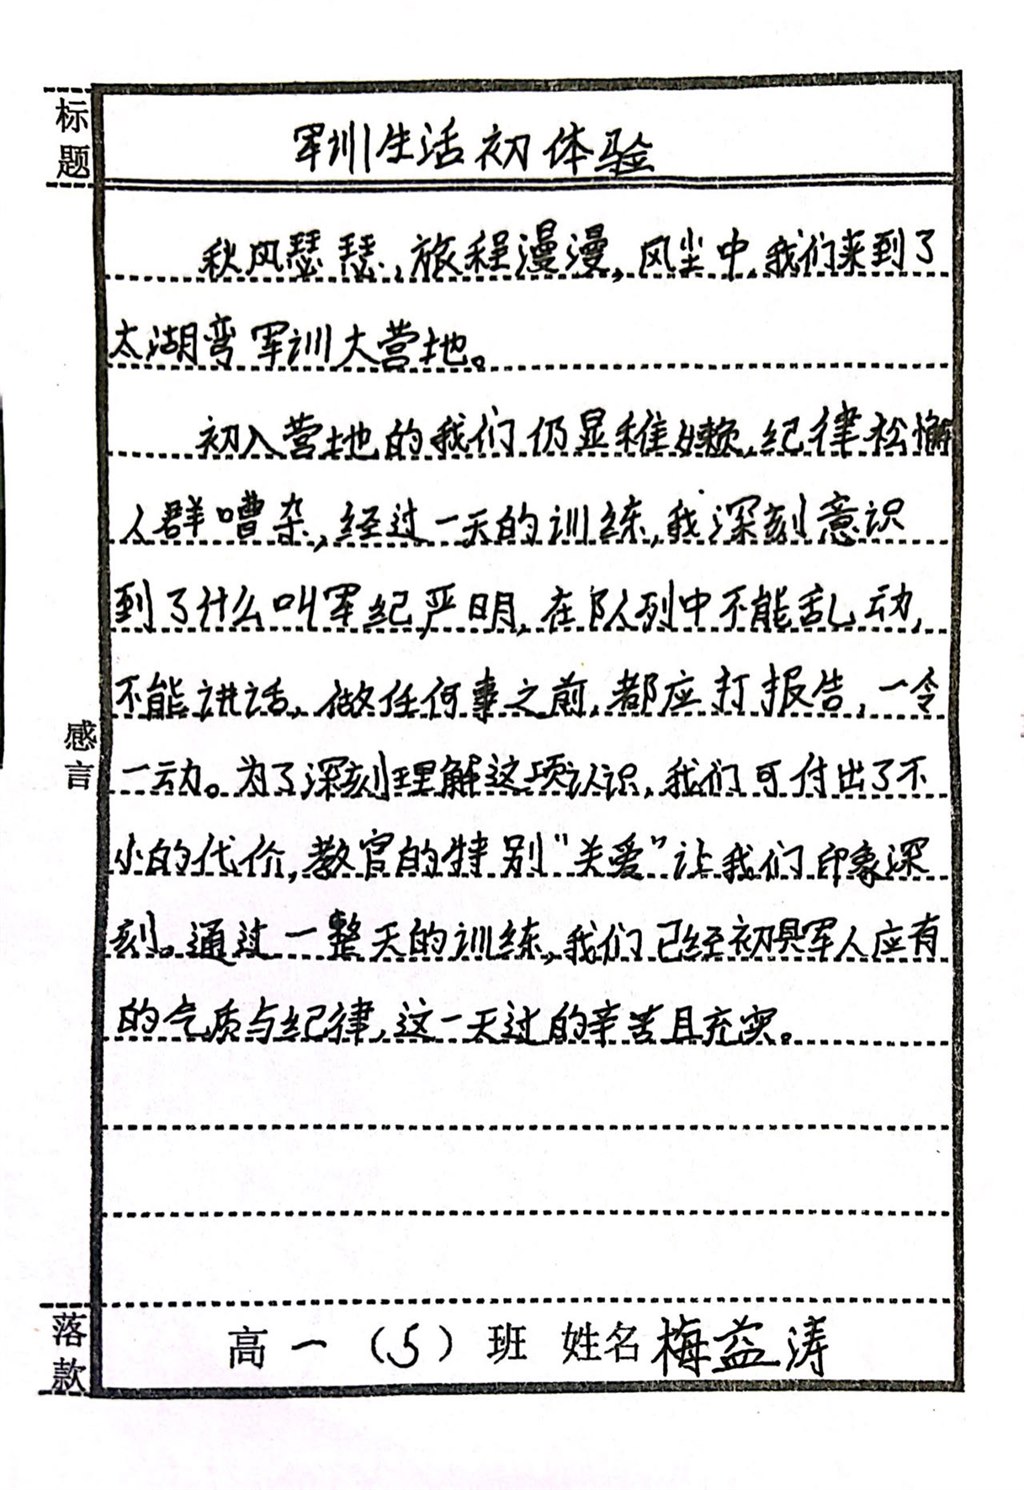 标题
军训生活初体验
秋风瑟瑟,旅程漫漫,风尘中,我们来到了
太湖弯军训大营地。
初入营地的我们仍显稚嫩,纪律松懈
人群嘈杂,经过一天的训练,我深刻意识
到了什么叫军纪严明,在队列中不能乱动,
不能讲话,做任何事之前,都应打报告,一令
感言
一动。为了深刻理解这项认识,我们可付出了不
小的代价,教官的特别“关爱”让我们印象深
刻。通过一整天的训练,我们已经初具军人应有
的气质与纪律,这一天过的辛苦且充实。
落款
高一(5)班 姓名梅益涛